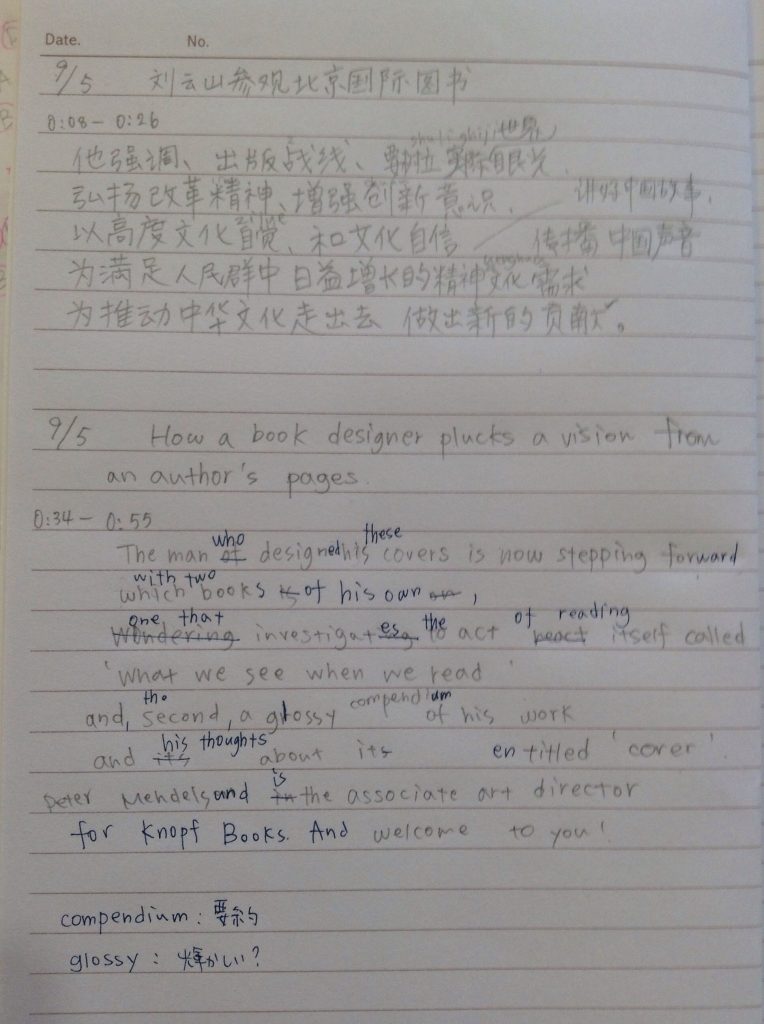 Date. No.
9/5 刘云山参观北京国际图书
0:08 - 0:26
世界
他强调、出版战线、要树立
弘扬改革精神、增强创新意识、 讲好中国故事,
以高度文化自觉、和文化自信 传播中国声音
为满足人民群中日益增长的精神文化需求
为推动中华文化走出去 做出新的贡献。
9/5 How a book designer plucks a vision from
an author's pages.
0:34 - 0:55
who these
The man designed his covers is now stepping forward
with two
which books of his own ,
one that es the of reading
Wondering investigat to act react itself called
'what we see when we read '
the compendium
and, second, a glossy of his work
his thoughts
and its about its entitled 'cover'.
is
Peter Mendelsand in the associate art director
for Knopf Books. And welcome to you!
compendium : 要約
glossy : 輝かしい?